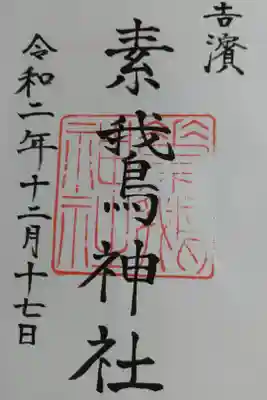 吉濱
素鵞神社
令和二年十二月十七日